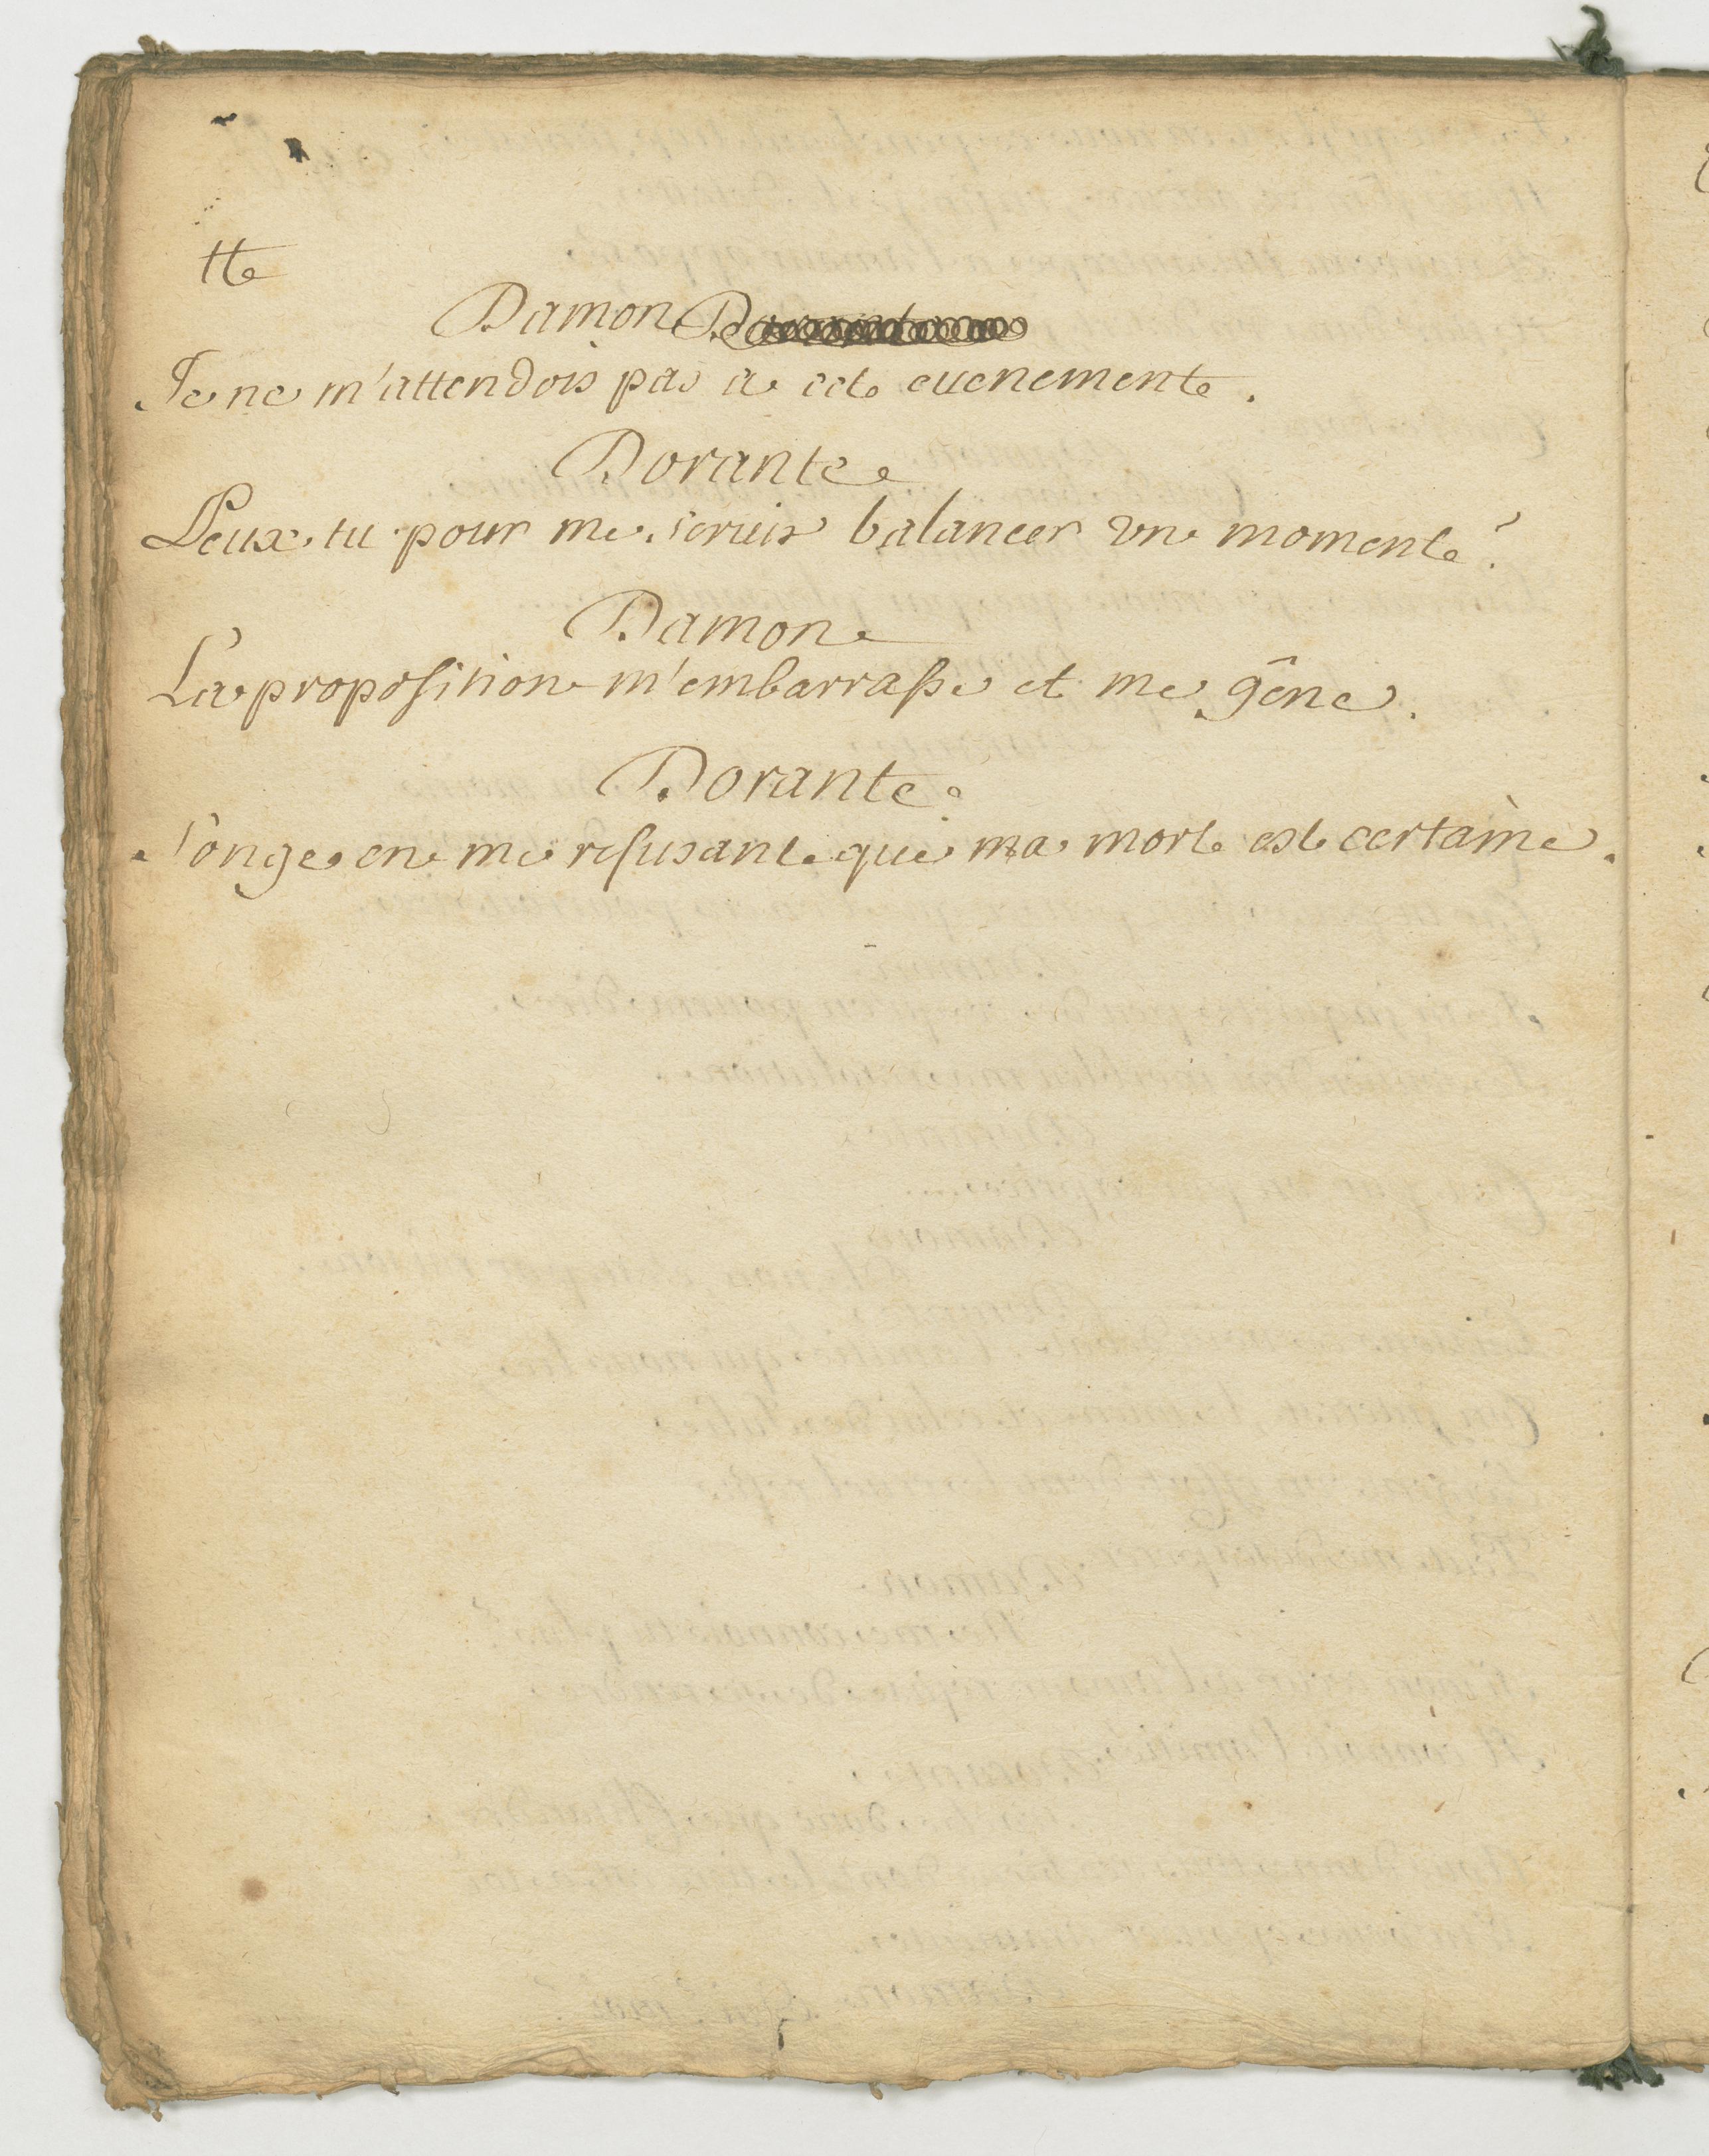 tt
Damon
Je ne m'attendois pas a cet euenement.
Dorante
Peux tu pour me seruir balancer un moment?
Damon
La proposition m'embarrasse et me gêne.
Dorante
songe en me refusant que ma mort est certaine.